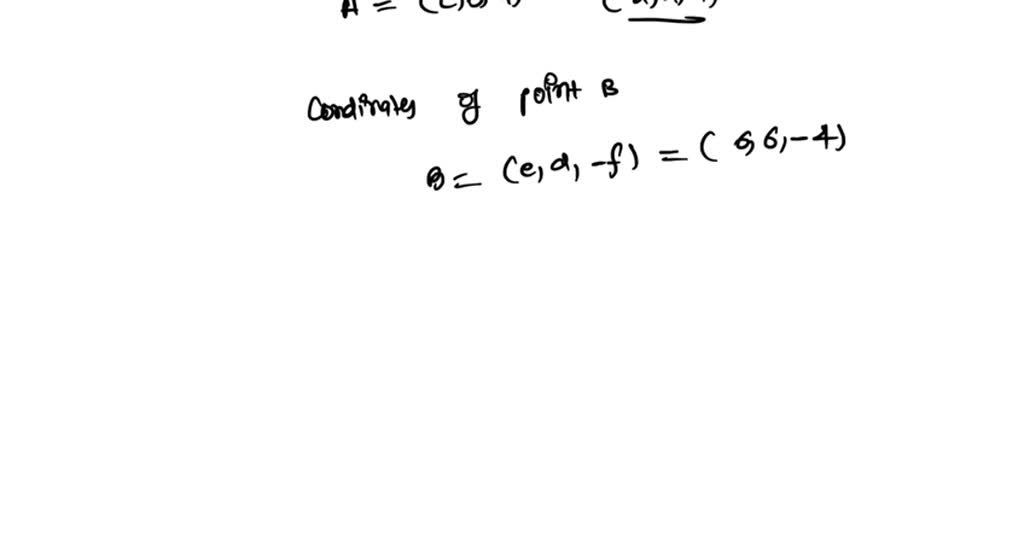 A =
Coordinates of point B
B = (e, d, -f) = ( 6, 6, -4)